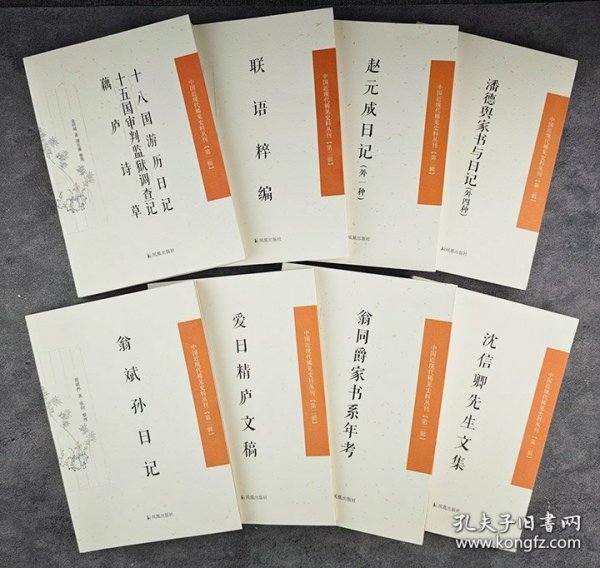 十八国游历日记
十五国审判监狱调查记
藕庐诗草
中国近现代稀见史料丛刊【第二辑】
凤凰出版社
联语粹编
中国近现代稀见史料丛刊【第二辑】
凤凰出版社
赵元成日记(外一种)
中国近现代稀见史料丛刊【第二辑】
凤凰出版社
潘德舆家书与日记(外四种)
中国近现代稀见史料丛刊【第二辑】
凤凰出版社
翁斌孙日记
中国近现代稀见史料丛刊【第二辑】
凤凰出版社
爱日精庐文稿
中国近现代稀见史料丛刊【第二辑】
凤凰出版社
翁同爵家书系年考
中国近现代稀见史料丛刊【第二辑】
凤凰出版社
沈信卿先生文集
中国近现代稀见史料丛刊【第二辑】
孔夫子旧书网
www.kongfz.com